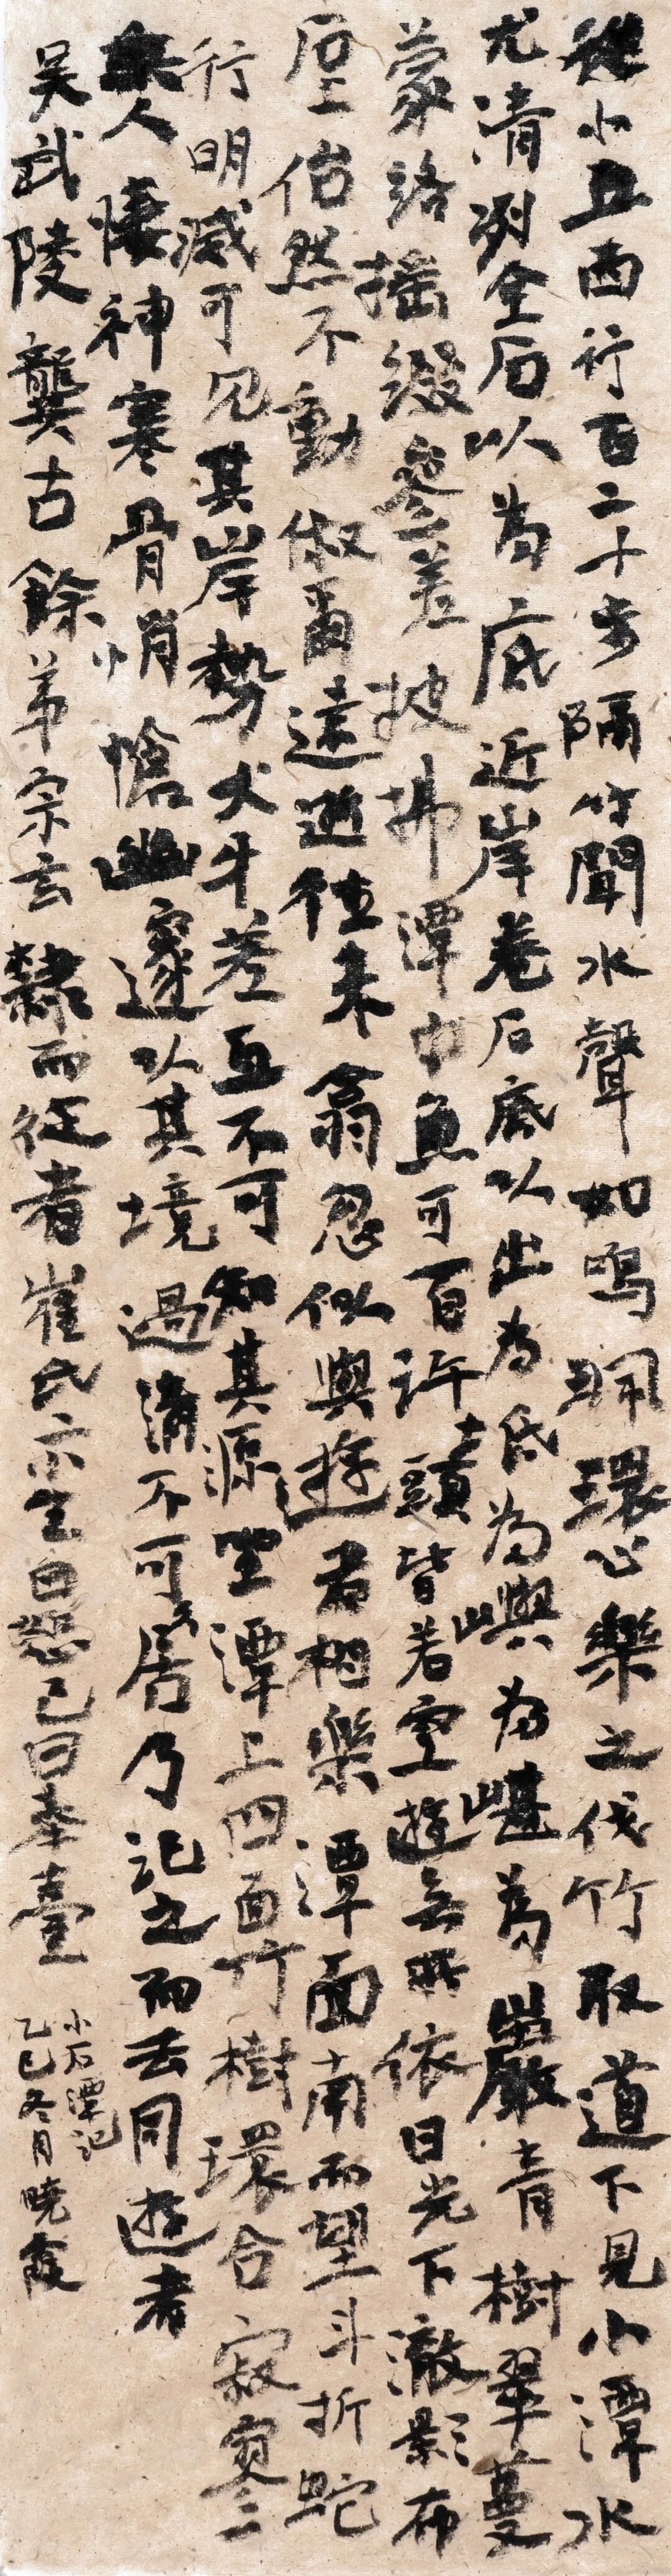 從小丘西行百二十步隔竹聞水聲如鳴珮環心樂之伐竹取道下見小潭水
尤清冽全石以為底近岸卷石底以出為坻為嶼為嵁為巖青樹翠蔓
蒙絡搖綴參差披拂潭中魚可百許頭皆若空遊無所依日光下澈影布
石上佁然不動俶爾遠逝往來翕忽似與游者相樂潭西南而望斗折蛇
行明滅可見其岸勢犬牙差互不可知其源坐潭上四面竹樹環合寂寥無
人悽神寒骨悄愴幽邃以其境過清不可久居乃記之而去同遊者
吳武陵龔古余弟宗玄隸而從者崔氏二小生曰恕己曰奉壹
小石潭記
乙巳冬月曉霞